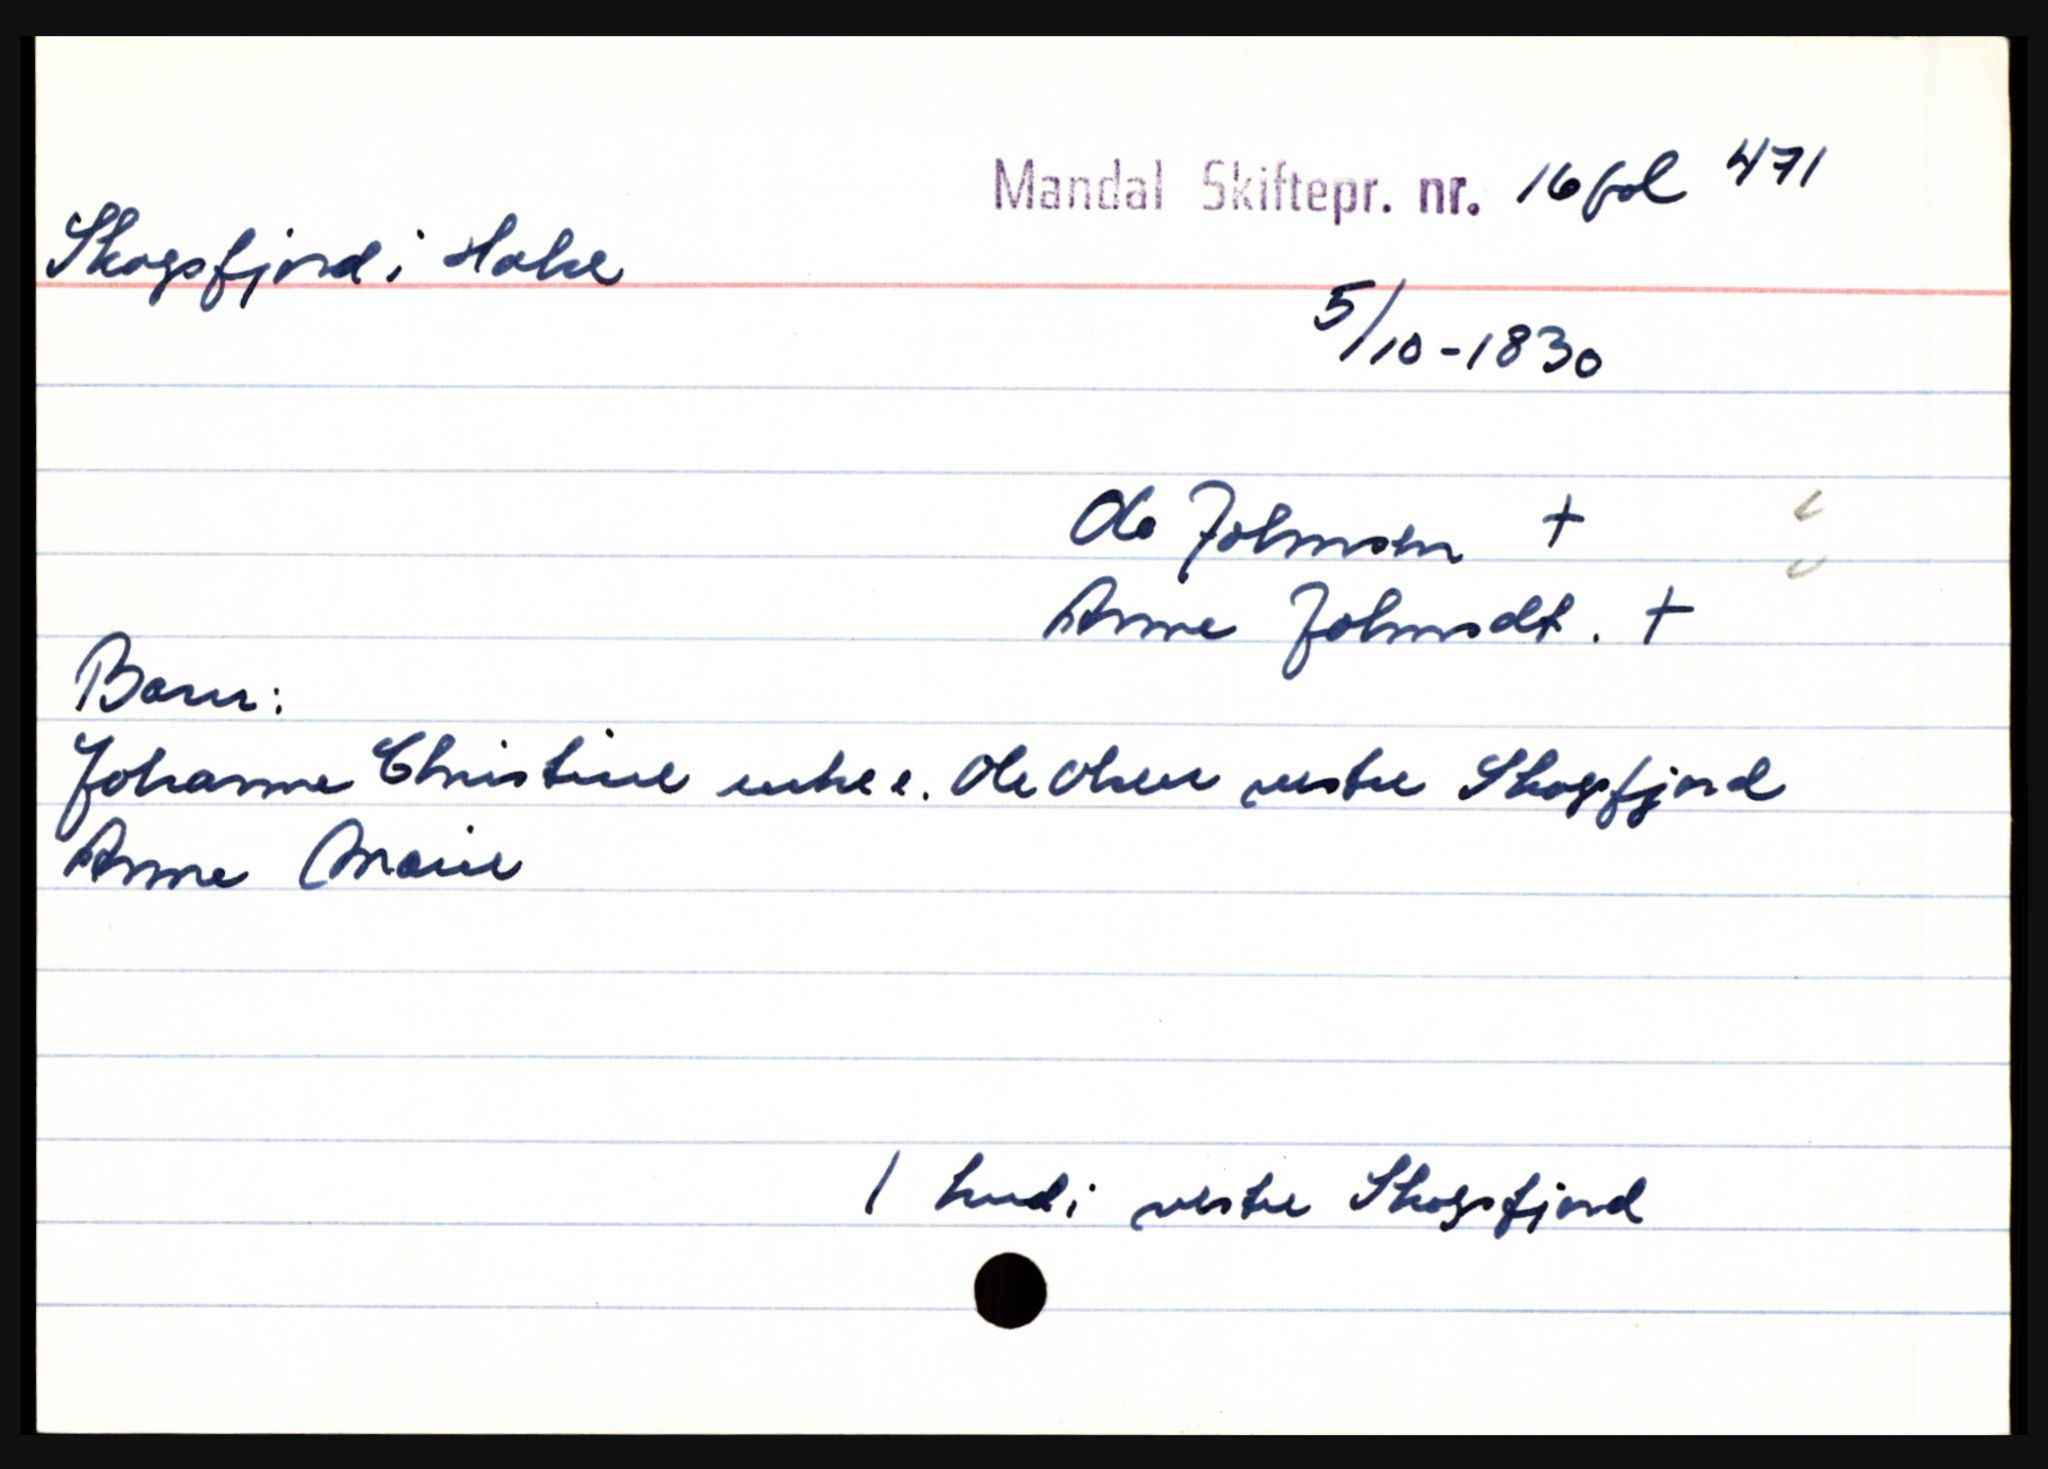 Mandal Skiftepr. nr. 16 fol 471
Skogsfjord i Halse
5/10-1830
Ole Johnsen +
Anne Johnsdt. +
Barn:
Johanne Christine enke e. Ole Olsen vestre Skogsfjord
Anne Marie
1 hud i vestre Skogsfjord